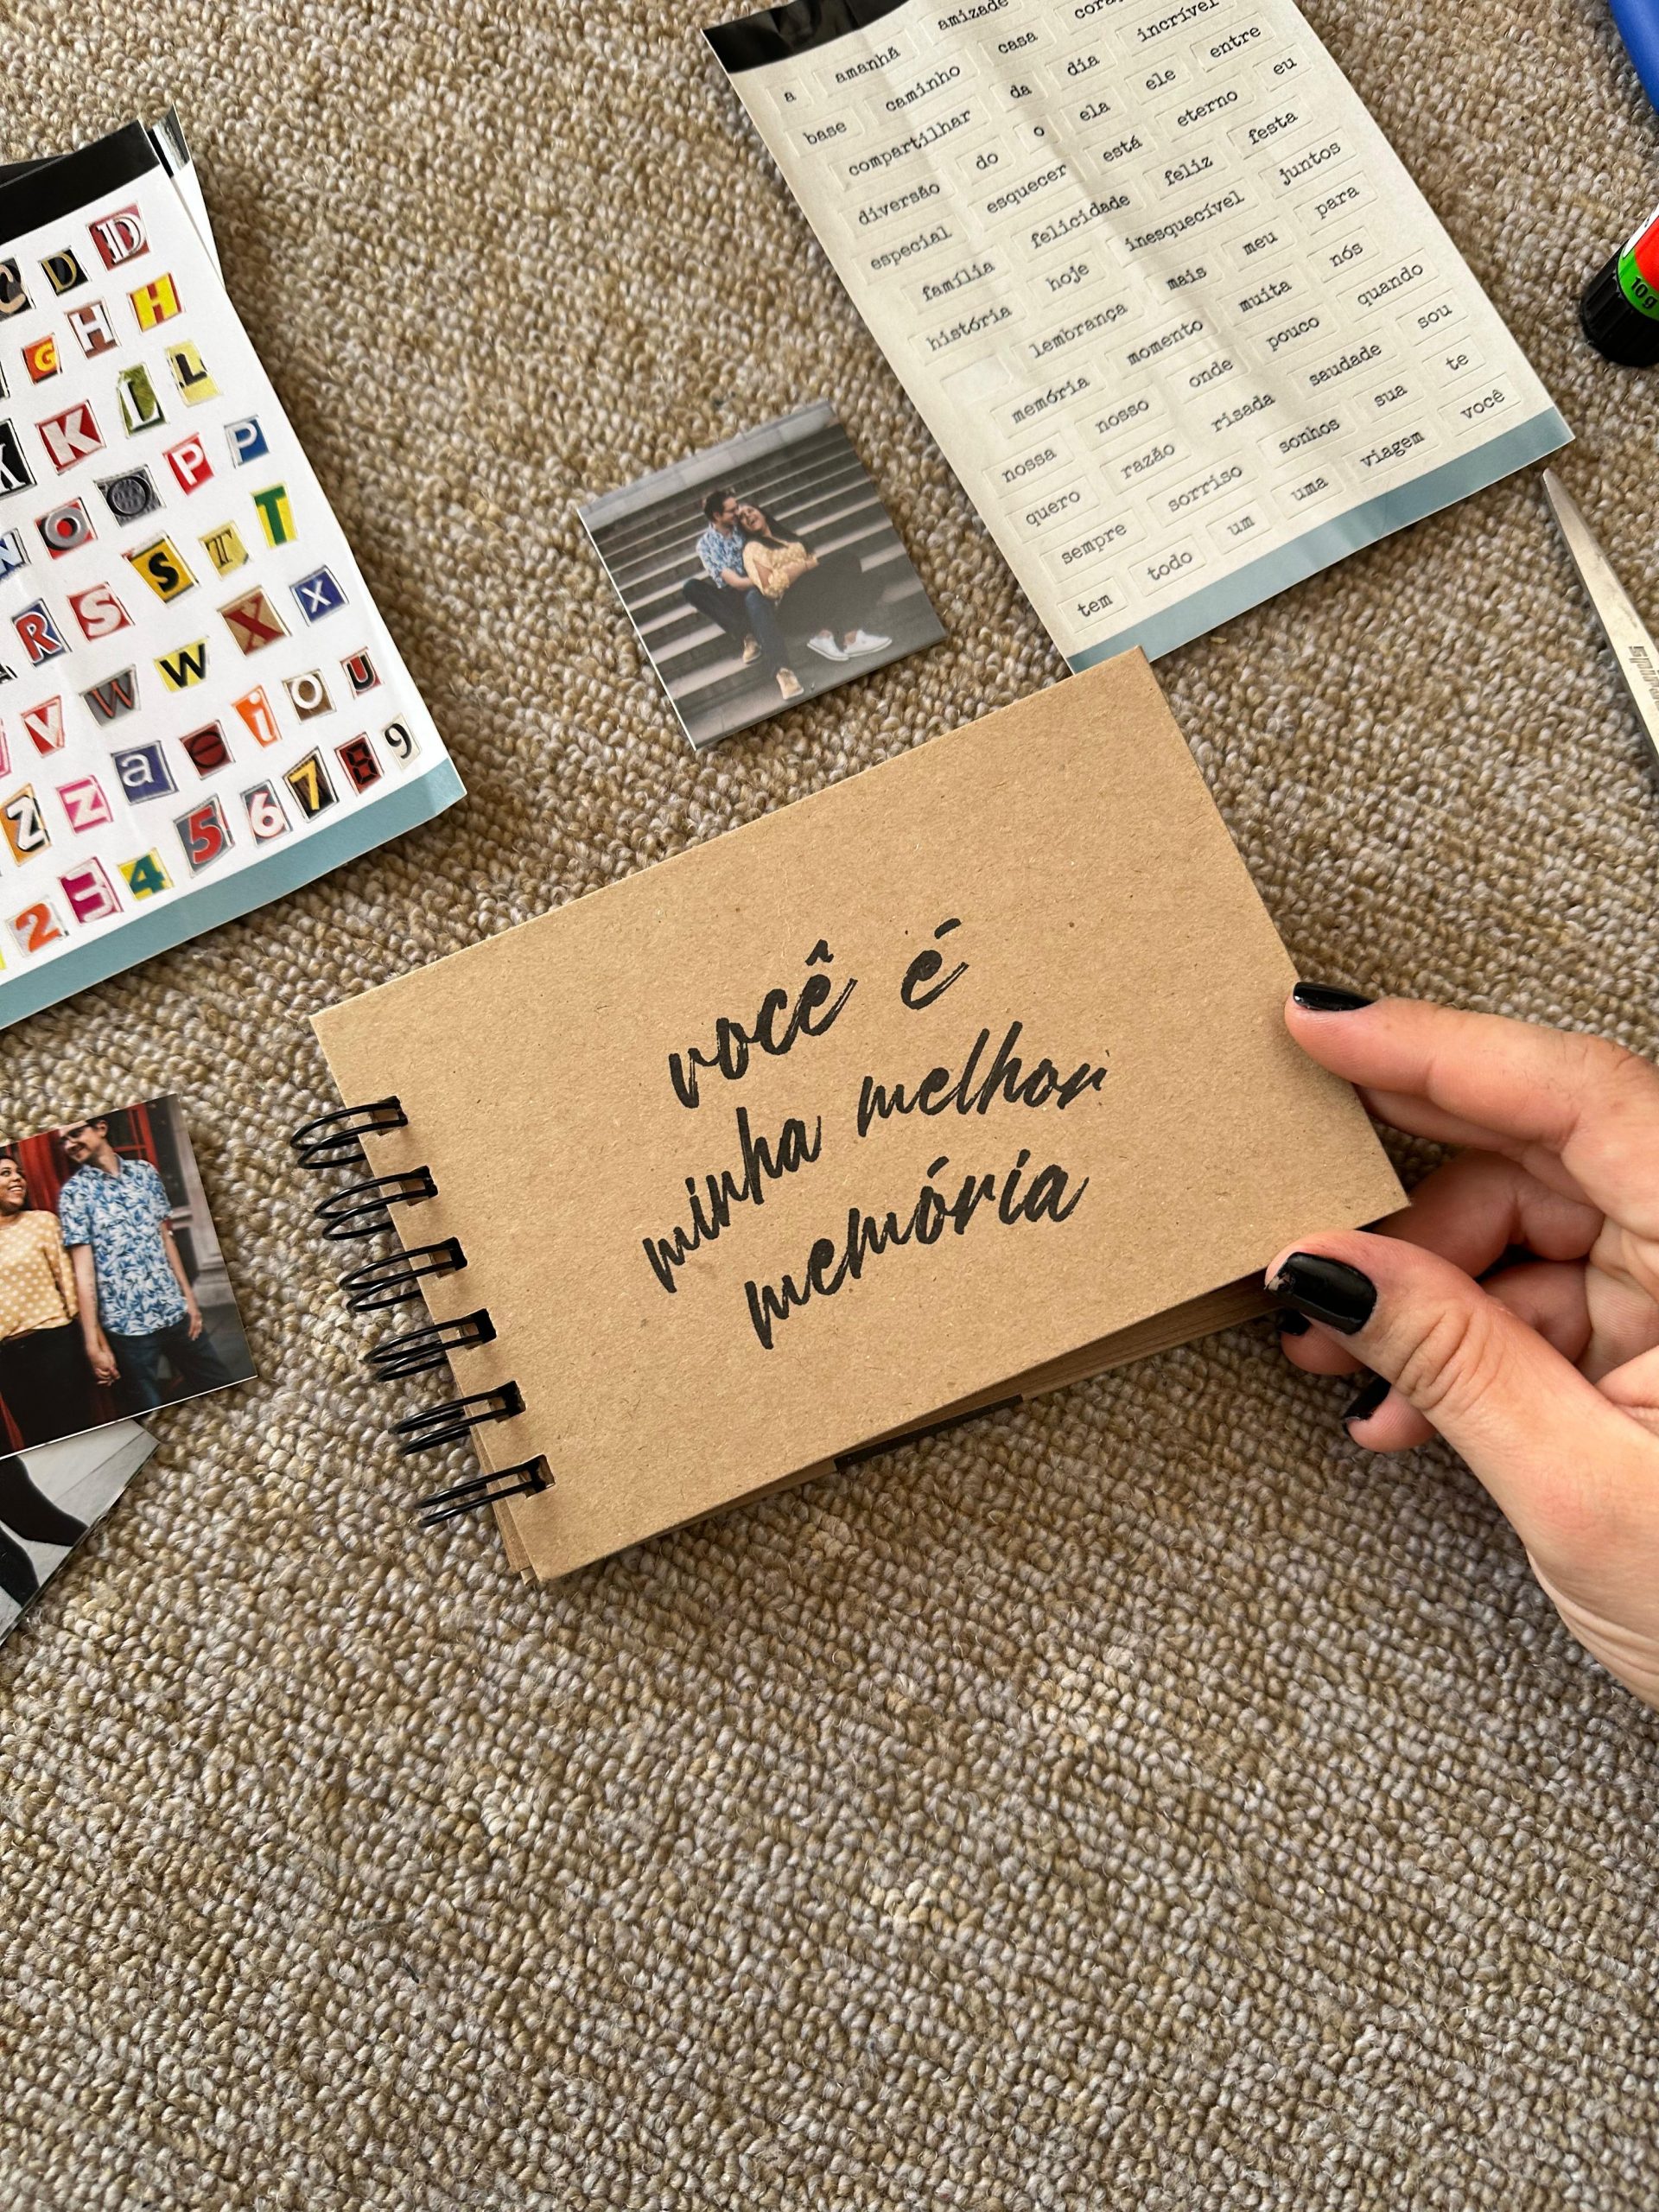 a amanhã amizade
base caminho casa
compartilhar da dia incrível
diversão do o ela ele entre
especial esquecer está eterno eu
família felicidade feliz festa
história hoje inesquecível juntos
lembrança mais meu para
memória momento muita nós
nossa nosso onde pouco quando
quero razão risada saudade sou
sempre sorriso sonhos sua te
tem todo um uma viagem você
C D D
G H H
K K L L
N O O P P
R S S T T
V W W X X
Z Z a e i o u
2 3 4 5 6 7 8 9
10g
você é
minha melhor
memória